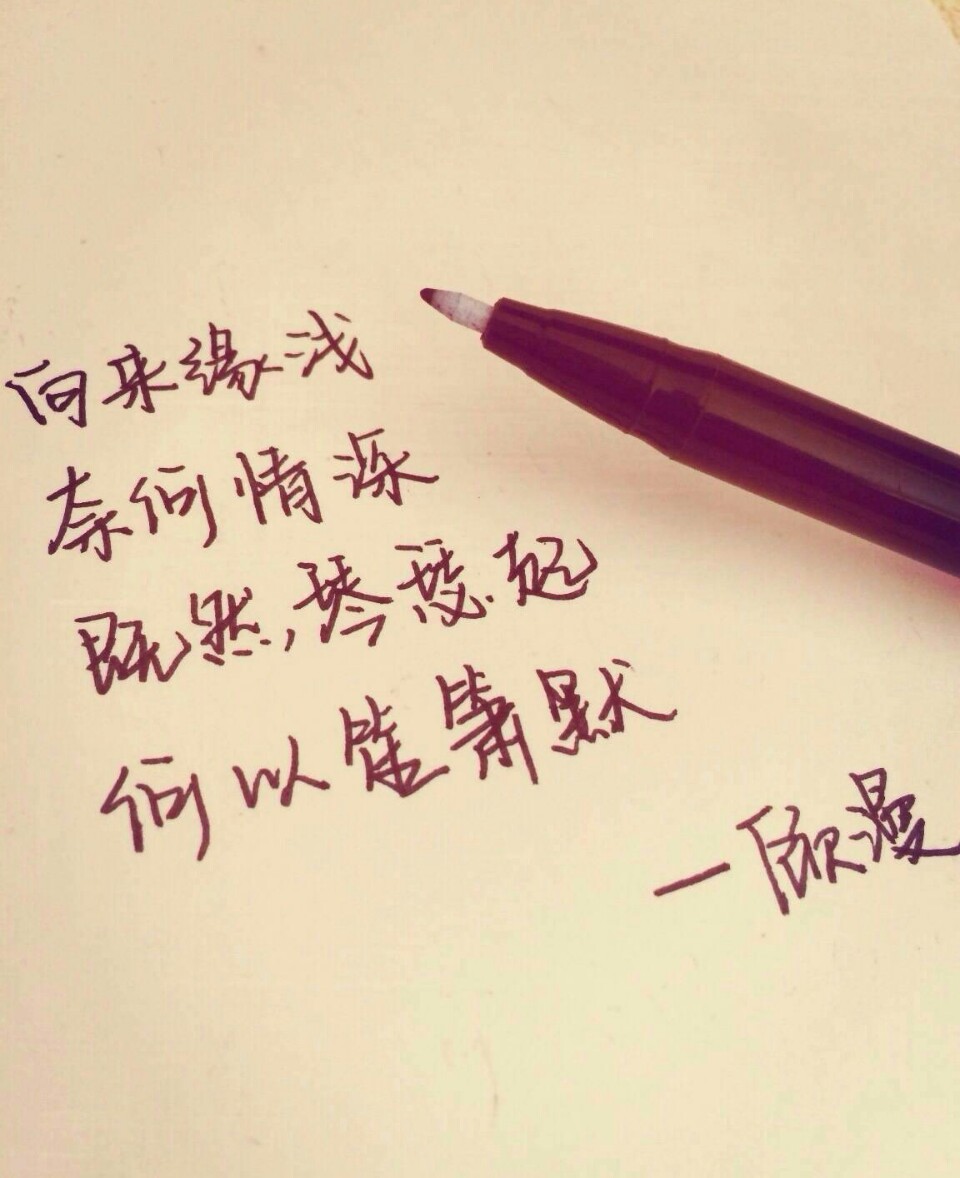 向来缘浅
奈何情深
既然,琴瑟起
何以笙箫默
—欣漫